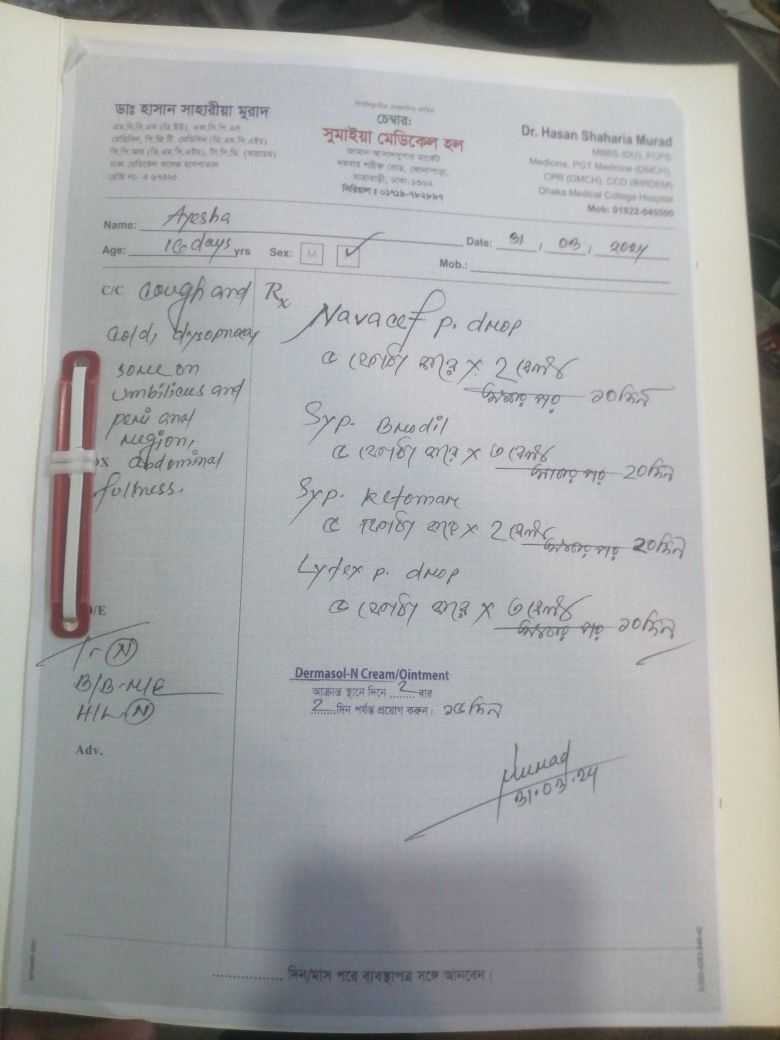 ডাঃ হাসান সাহারীয়া মুরাদ
এম.বি.বি.এস (ডি.ইউ), এফ.সি.পি.এস
মেডিসিন, পি.জি.টি. মেডিসিন (ডি.এম.সি.এইচ)
সি.পি.আর (ডি.এম.সি.এইচ), সি.সি.ডি. (বারডেম)
ঢাকা মেডিকেল কলেজ হাসপাতাল
চেম্বার:
সুমাইয়া মেডিকেল হল
সিরিয়াল :
Dr. Hasan Shaharia Murad
MBBS (DU), FCPS
Medicine, PGT Medicine (DMCH),
CPR (DMCH), CCD (BIRDEM)
Dhaka Medical College Hospital
Mob: 01922-
Name: Ayesha
Date: 31, 03, 2024
Age: 16 days yrs Sex: M ✓
Mob.:
C/C cough and
cold, dysopnoea
some on
umbilicus and
peri anal
region,
abdominal
fullness.
O/E
B/B-N/R
H/L- N
Adv.
Rx
Navacef p. drop
৫ ফোটা করে X 2 বেলা
১০দিন
Syp. Brodil
৫ ফোটা করে X ৩ বেলা
20দিন
Syp. Ketomar
৫ ফোটা করে X 2 বেলা
20দিন
Lytex p. drop
৫ ফোটা করে X ৩ বেলা
১০দিন
Dermasol-N Cream/Ointment
আক্রান্ত স্থানে দিনে ...2... বার
2 ......দিন পর্যন্ত প্রয়োগ করুন। ১৫ দিন
Murad
31.03.24
.................. দিন/মাস পরে ব্যবস্থাপত্র সঙ্গে আনবেন।